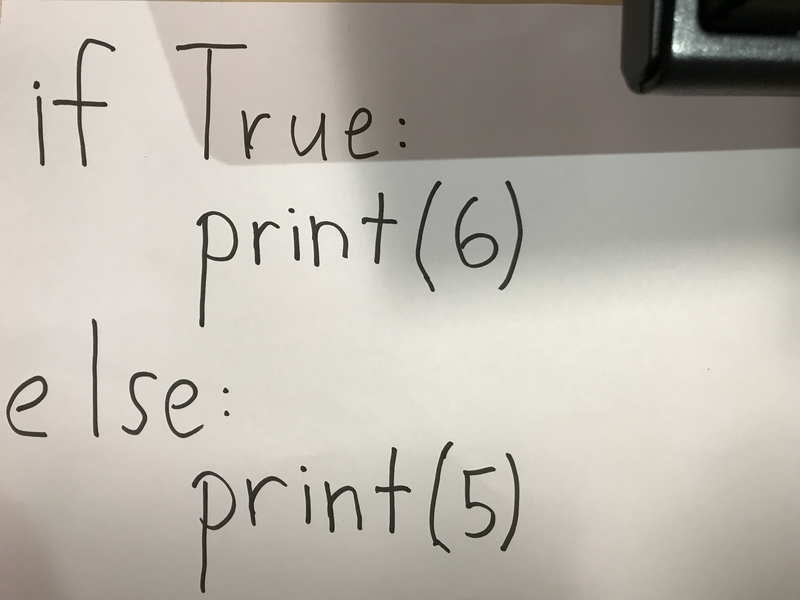 if True:
    print(6)
else:
    print(5)